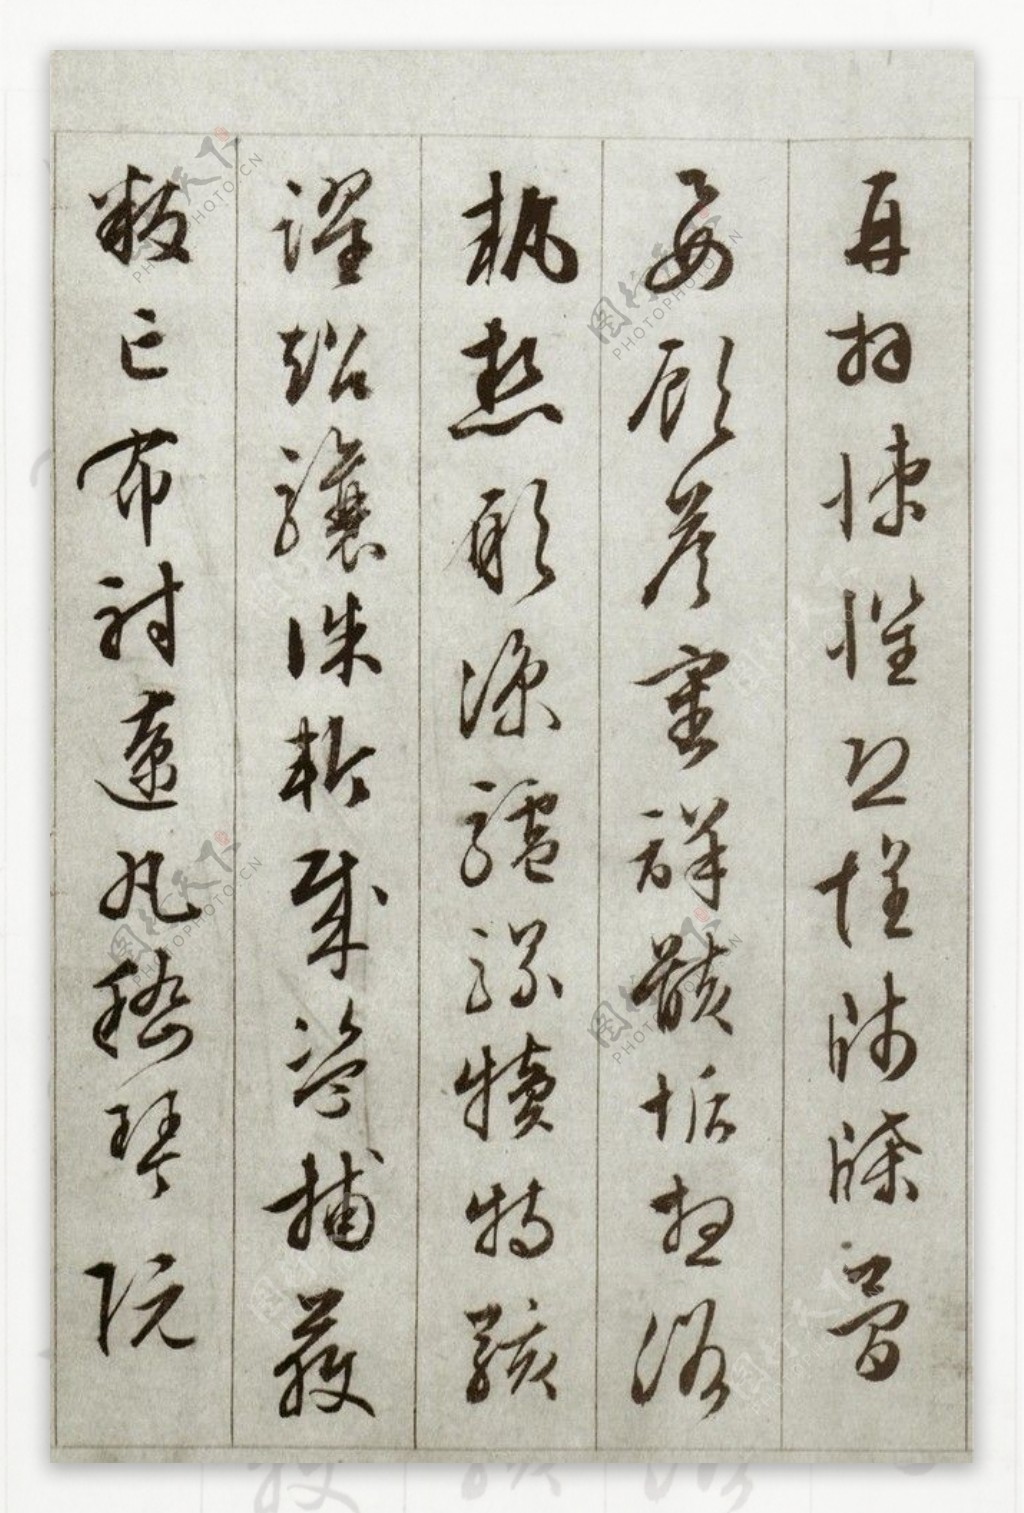 再拜悚懼恐惶牋牒簡
要顧答審詳骸垢想浴
執熱願涼驢騾犢特駭
躍超驤誅斬賊盜捕獲
叛亡布射遼丸嵇琴阮